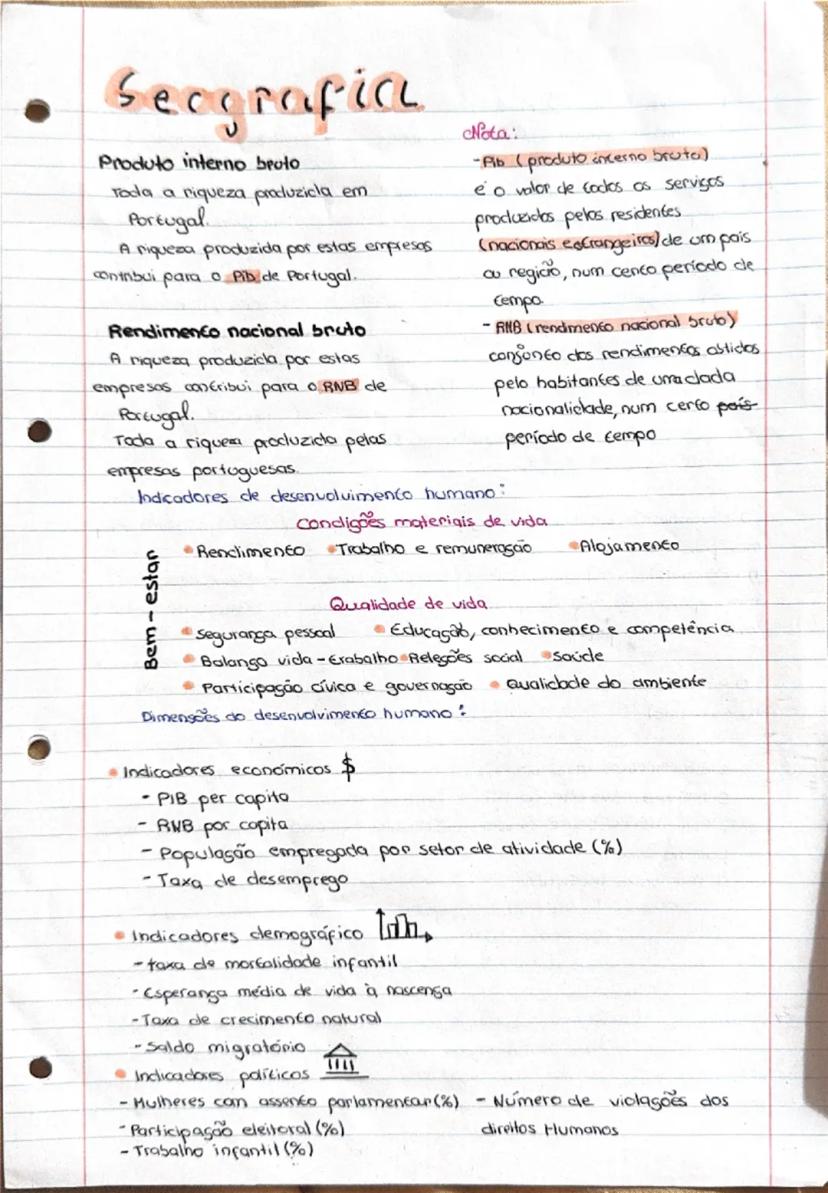 Geografia
Produto interno bruto
Toda a riqueza produzida em
Portugal.
A riqueza produzida por estas empresas
contribui para o Pib de Portugal.
Rendimento nacional bruto
A riqueza produzida por estas
empresas contribui para o RNB de
Portugal.
Toda a riqueza produzida pelas
empresas portuguesas.
Nota:
- Pib (produto interno bruto)
é o valor de todos os serviços
produzidos pelos residentes
(nacionais e estrangeiros) de um país
ou região, num certo período de
tempo.
- RNB (rendimento nacional bruto)
conjunto dos rendimentos obtidos
pelo habitantes de uma dada
nacionalidade, num certo país
período de tempo
Indicadores de desenvolvimento humano:
Condições materiais de vida
Bem-estar
• Rendimento • Trabalho e remuneração • Alojamento
Qualidade de vida
• Segurança pessoal • Educação, conhecimento e competência
• Balanço vida-trabalho • Releções social • saúde
• Participação cívica e governação • Qualidade do ambiente
Dimensões do desenvolvimento humano:
• Indicadores económicos $
- PIB per capita
- RNB por capita
- População empregada por setor de atividade (%)
- Taxa de desemprego
• Indicadores demográfico
- taxa de mortalidade infantil
- Esperança média de vida à nascença
- Taxa de crecimento natural
- Saldo migratório
• Indicadores políticos
- Mulheres com assento parlamentar (%) - Número de violações dos
direitos Humanos
- Participação eleitoral (%)
- Trabalho infantil (%)